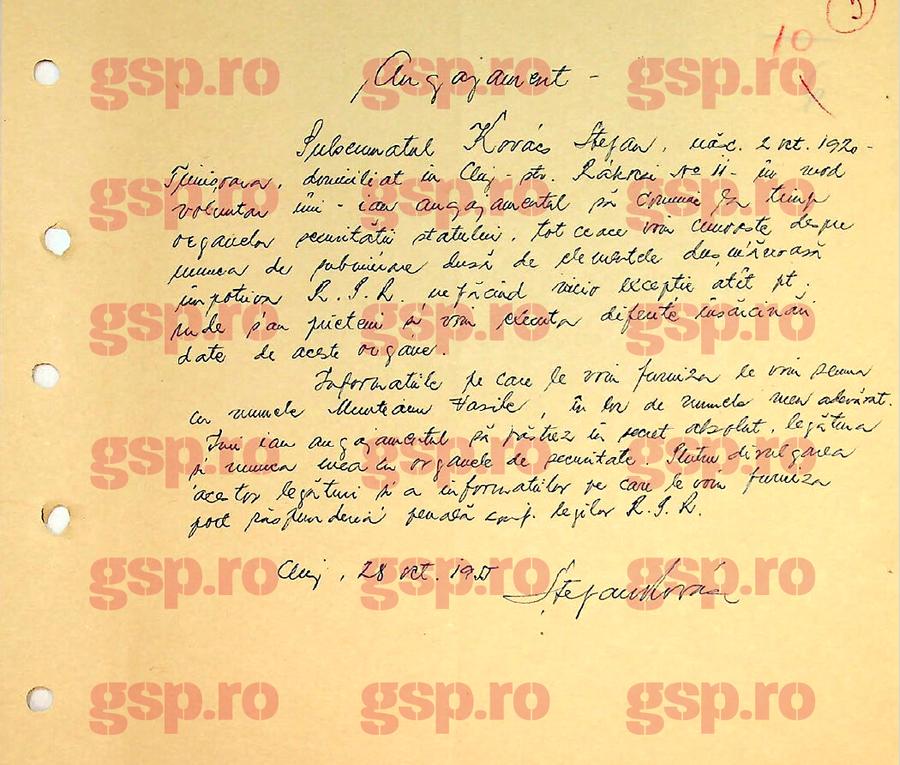 10
Angajament -
Subsemnatul Kovács Ștefan, născ. 2 oct. 1920 -
Timișoara, domiciliat in Cluj - str. Rákoczi No 11 - în mod
voluntar îmi - iau angajamentul să comunic la timp
organelor securității statului, tot ceace voi cunoaște despre
munca de subminare dusă de elementele dușmănoasă
împotriva R.P.R. nefăcând nicio excepție atît pt.
rude s'au prieteni și voi executa diferite însărcinări
date de aceste organe.
Informatiile pe care le voi furniza le voi semna
cu numele Munteanu Vasile, în loc de numele meu adevărat.
Imi iau angajamentul să păstrez în secret absolut, legătura
și munca mea cu organele de securitate. Pentru divulgarea
acestor legături și a informatiilor pe care le voi furniza
port răspunderea penală conf. legilor R.P.R.
Cluj, 28 oct. 195
Ștefan Kovács
gsp.ro gsp.ro gsp.ro
gsp.ro gsp.ro gsp.ro
gsp.ro gsp.ro gsp.ro
gsp.ro gsp.ro gsp.ro
gsp.ro gsp.ro gsp.ro
gsp.ro gsp.ro gsp.ro